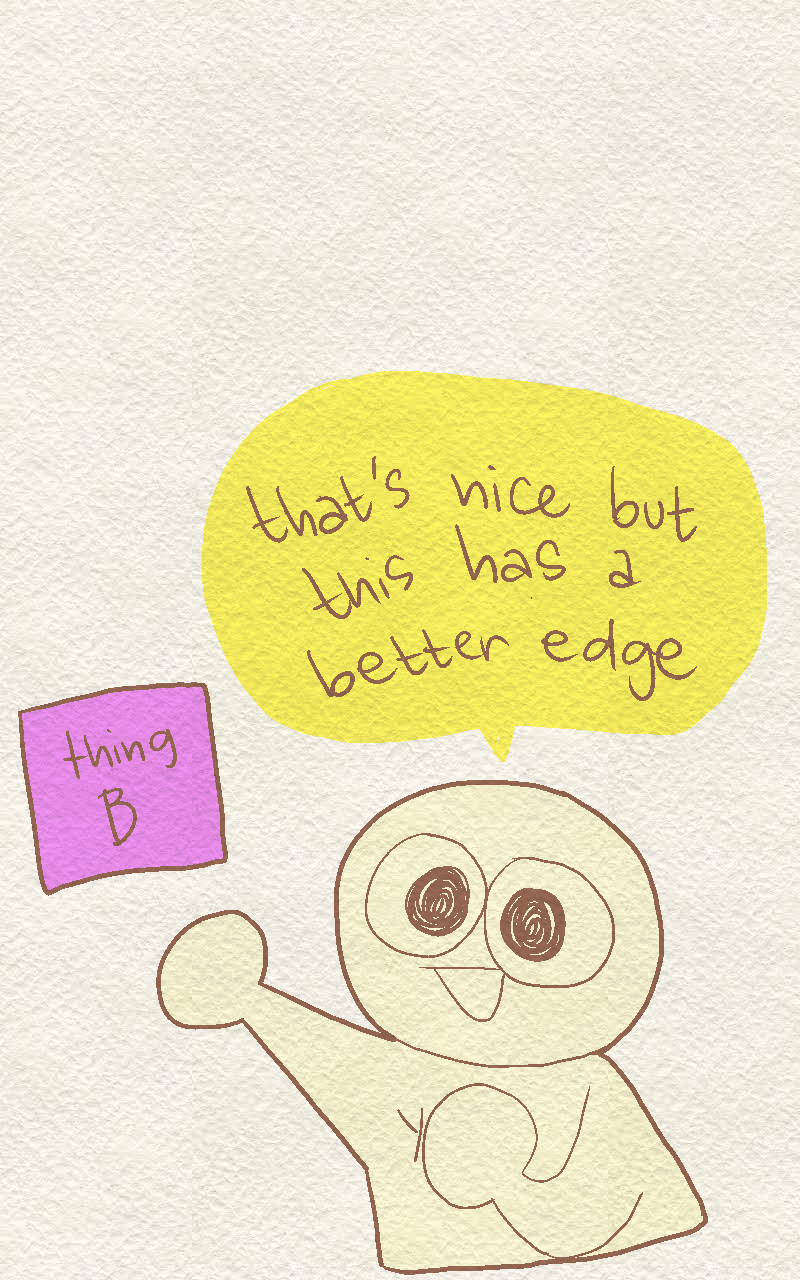 that's nice but
this has a
better edge
thing
B